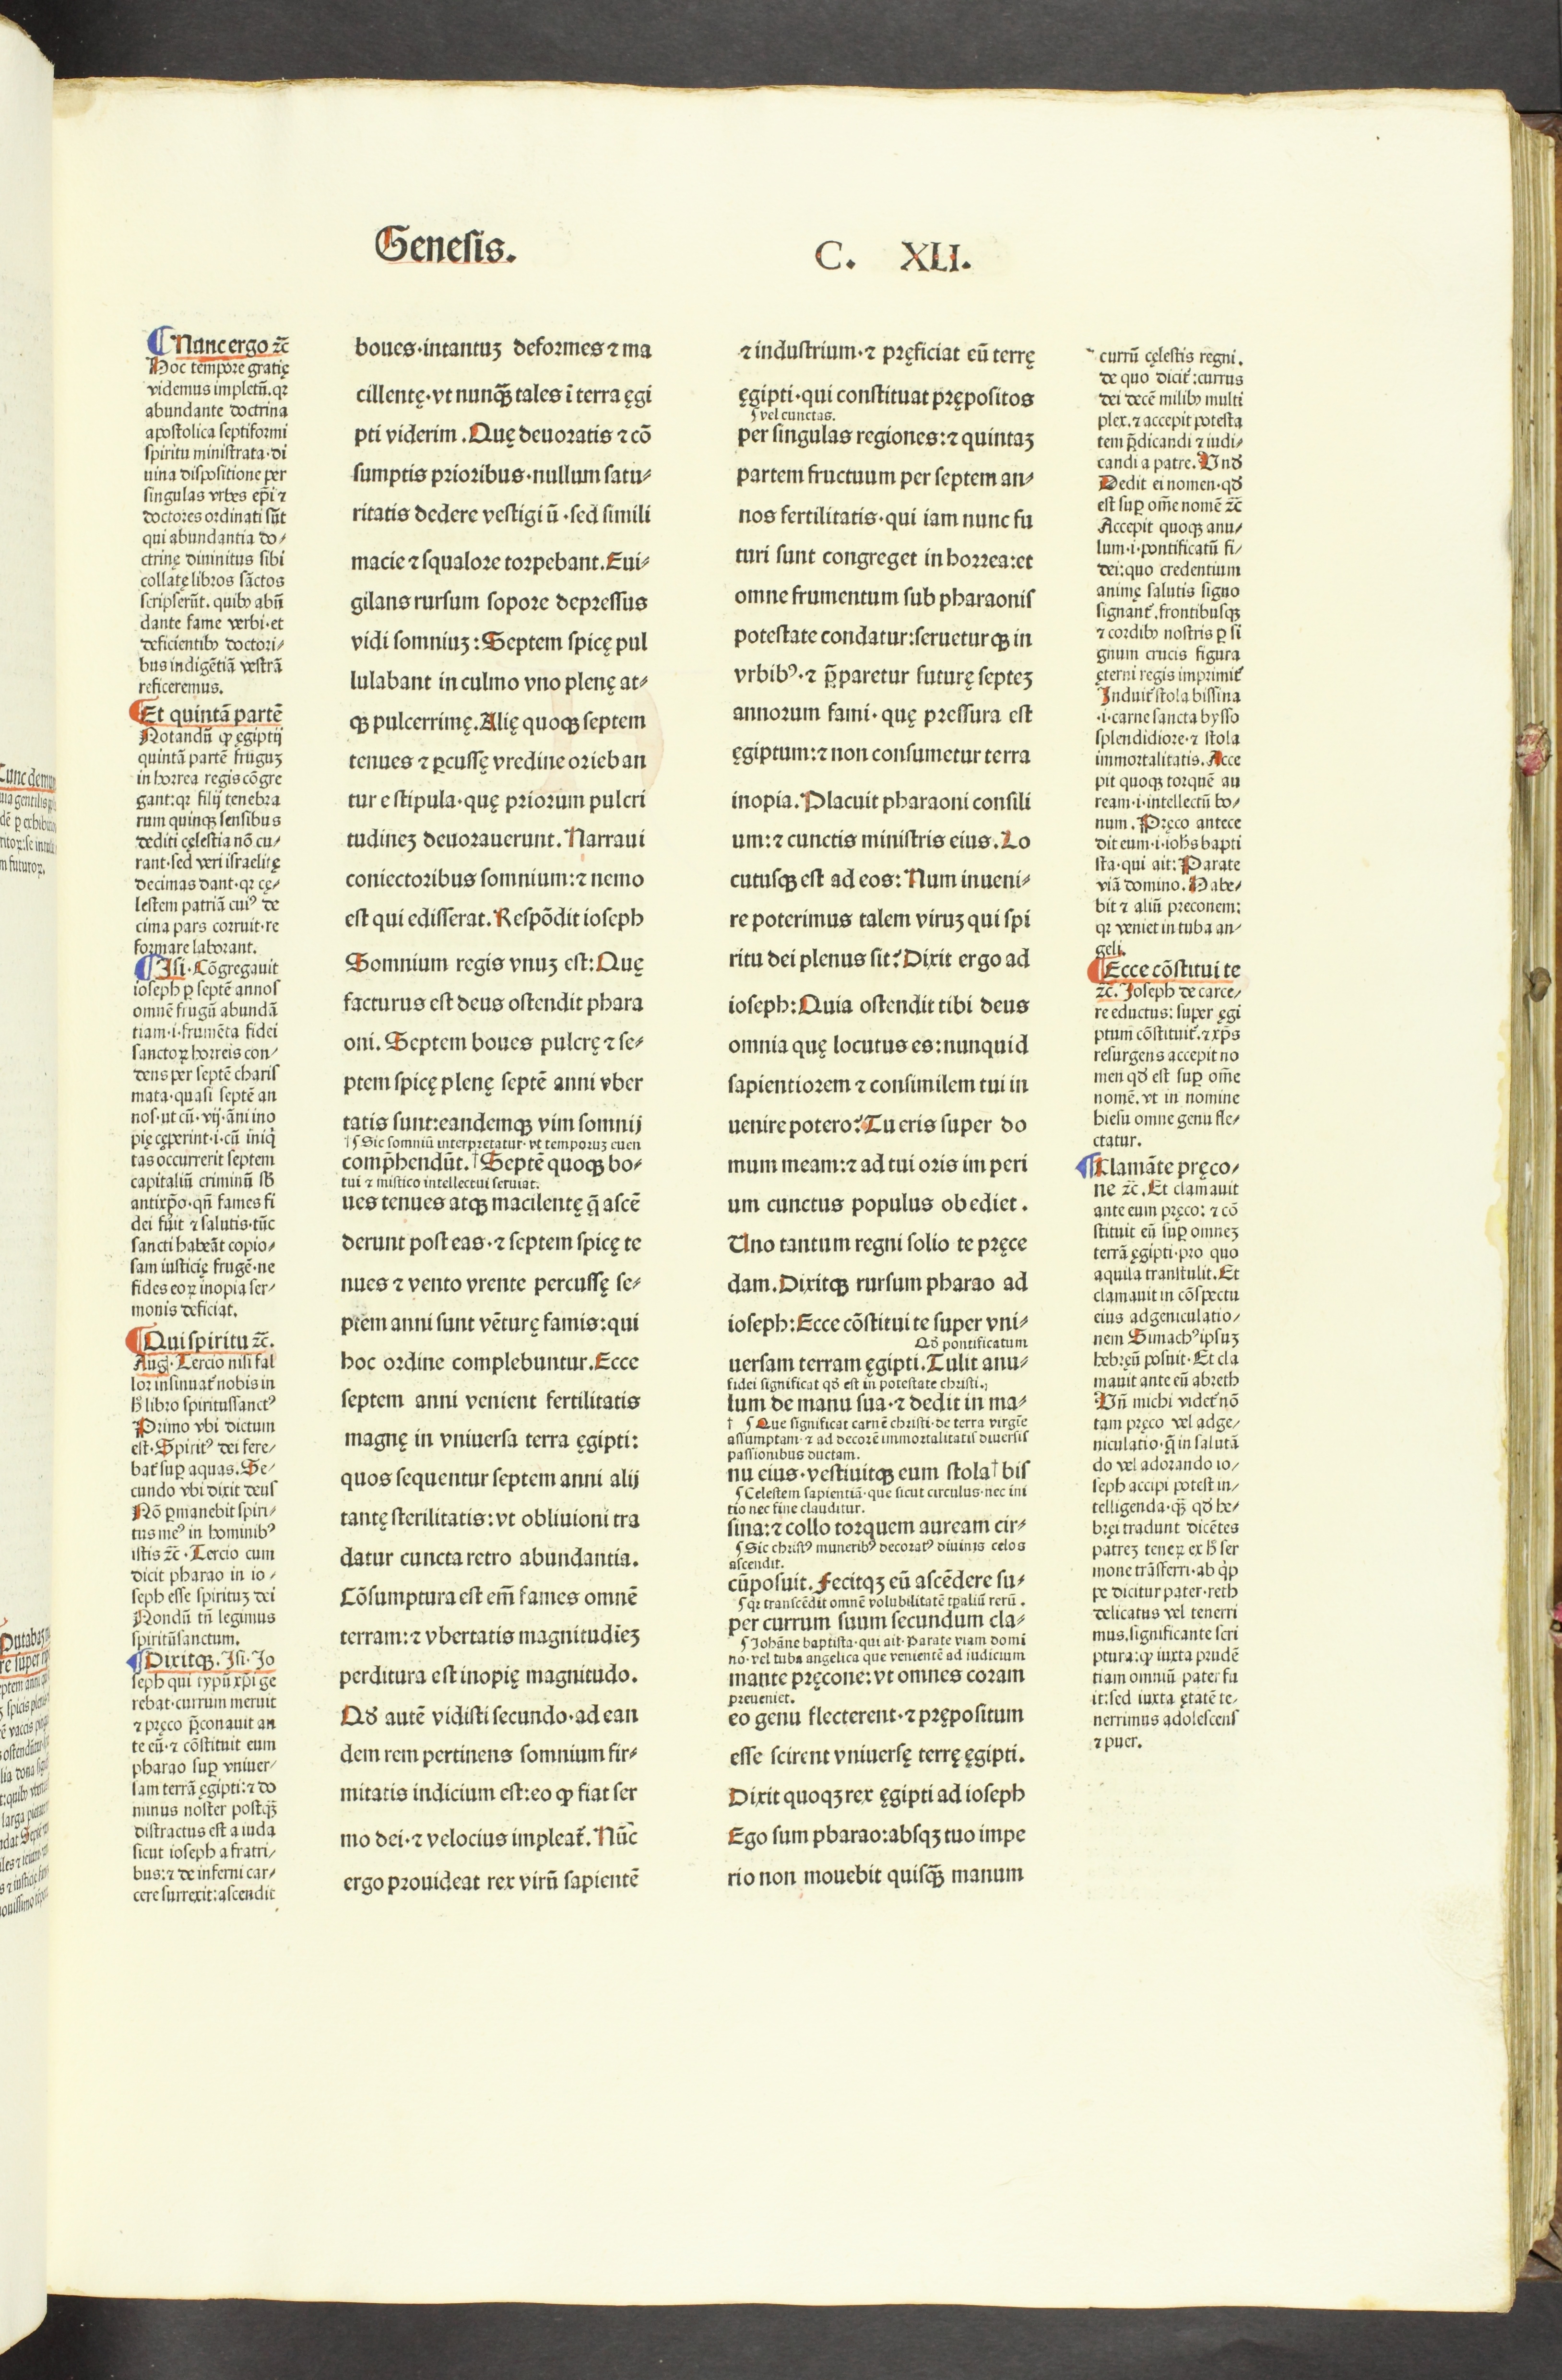 Genesis.
C. XLI.
Nunc ergo ⁊c̃
Hoc tempore gratię
videmus impletũ. qꝛ
abundante doctrina
apostolica septiformi
spiritu ministrata · di
uina dispositione per
singulas vrbes ep̃i ⁊
doctores ordinati sũt
qui abundantia do⸗
ctrinę diuinitus sibi
collatę libros sãctos
scripserũt. quibꝰ abũ
dante fame verbi · et
deficientibꝰ doctori⸗
bus indigẽtiã vestrã
reficeremus.
Et quintã partẽ
Notandũ ꝙ ęgiptij
quintã partẽ fruguꝫ
in horrea regis cõgre
gant: qꝛ filij tenebra
rum quinqꝫ sensibus
dediti cęlestia nõ cu⸗
rant · sed veri israelitę
decimas dant · qꝛ cę⸗
lestem patriã cuiꝰ de
cima pars corruit · re
formare laborant.
Isi · Cõgregauit
ioseph ꝑ septẽ annos
omnẽ frugũ abundã
tiam · i · frumẽta fidei
sanctoꝝ horreis con⸗
dens per septẽ charis
mata · quasi septẽ an
nos · ut cũ · vij · ãni ino
pię cęperint · i · cũ iniq̃
tas occurrerit septem
capitaliũ criminũ sƀ
antixp̃o · qñ fames fi
dei fuit ⁊ salutis · tũc
sancti habeãt copio⸗
sam iusticię frugẽ · ne
fides eoꝝ inopia ser⸗
monis deficiat.
Qui spiritu ⁊c̃.
Aug. Tercio nisi fal
lor insinuat̃ nobis in
h̃ libro spiritussanctꝰ
Primo vbi dictum
est · Spiritꝰ dei fere⸗
bat̃ suꝑ aquas. Se⸗
cundo vbi dixit deus
Nõ ꝑmanebit spiri⸗
tus meꝰ in hominibꝰ
istis ⁊c̃ · Tercio cum
dicit pharao in io⸗
seph esse spirituꝫ dei
Nondũ tñ legimus
spiritũsanctum.
Dixitqꝫ. Isi · Jo
seph qui typũ xp̃i ge
rebat · currum meruit
⁊ pręco p̃conauit an
te eũ · ⁊ cõstituit eum
pharao suꝑ vniuer⸗
sam terrã ęgipti: ⁊ do
minus noster postqꝫ̃
distractus est a iuda
sicut ioseph a fratri⸗
bus: ⁊ de inferni car⸗
cere surrexit: ascendit
boues · intantuꝫ deformes ⁊ ma
cillentę · vt nunqꝫ̃ tales ĩ terra ęgi
pti viderim. Quę deuoratis ⁊ cõ
sumptis prioribus · nullum satu⸗
ritatis dedere vestigiũ · sed simili
macie ⁊ squalore torpebant. Eui⸗
gilans rursum sopore depressus
vidi somniuꝫ: Septem spicę pul
lulabant in culmo vno plenę at⸗
qꝫ pulcerrimę. Alię quoqꝫ septem
tenues ⁊ ꝑcussę vredine orieban
tur e stipula · quę priorum pulcri
tudineꝫ deuorauerunt. Narraui
coniectoribus somnium: ⁊ nemo
est qui edisserat. Respõdit ioseph
Somnium regis vnuꝫ est: Quę
facturus est deus ostendit phara
oni. Septem boues pulcrę ⁊ se⸗
ptem spicę plenę septẽ anni vber
tatis sunt: eandemqꝫ vim somnij
† ¶ Sic somniũ interpretatur · vt temporuꝫ euen
comp̃hendũt. † Septẽ quoqꝫ bo⸗
tui ⁊ mistico intellectui seruiat.
ues tenues atqꝫ macilentę q̃ ascẽ
derunt post eas · ⁊ septem spicę te
nues ⁊ vento vrente percussę se⸗
ptẽm anni sunt vẽturę famis: qui
hoc ordine complebuntur. Ecce
septem anni venient fertilitatis
magnę in vniuersa terra ęgipti:
quos sequentur septem anni alij
tantę sterilitatis: vt obliuioni tra
datur cuncta retro abundantia.
Cõsumptura est em̃ fames omnẽ
terram: ⁊ vbertatis magnitudieꝫ
perditura est inopię magnitudo.
Qđ autẽ vidisti secundo · ad ean
dem rem pertinens somnium fir⸗
mitatis indicium est: eo ꝙ fiat ser
mo dei · ⁊ velocius impleat̃. Nũc
ergo prouideat rex virũ sapientẽ
⁊ industrium · ⁊ pręficiat eũ terrę
ęgipti · qui constituat prępositos
¶ vel cunctas.
per singulas regiones: ⁊ quintaꝫ
partem fructuum per septem an⸗
nos fertilitatis · qui iam nunc fu
turi sunt congreget in horrea: et
omne frumentum sub pharaonis
potestate condatur: serueturqꝫ in
vrbibꝰ · ⁊ p̃paretur futurę septeꝫ
annorum fami · quę pressura est
ęgiptum: ⁊ non consumetur terra
inopia. Placuit pharaoni consili
um: ⁊ cunctis ministris eius. Lo
cutusqꝫ est ad eos: Num inueni⸗
re poterimus talem viruꝫ qui spi
ritu dei plenus sit? Dixit ergo ad
ioseph: Quia ostendit tibi deus
omnia quę locutus es: nunquid
sapientiorem ⁊ consimilem tui in
uenire potero? Tu eris super do
mum meam: ⁊ ad tui oris imperi
um cunctus populus obediet.
Uno tantum regni solio te pręce
dam. Dixitqꝫ rursum pharao ad
ioseph: Ecce cõstitui te super vni⸗
Qđ pontificatum
uersam terram ęgipti. Tulit anu⸗
fidei significat qđ est in potestate christi.
lum de manu sua · ⁊ dedit in ma⸗
† ¶ Que significat carnẽ christi · de terra virgĩe
assumptam · ⁊ ad decorẽ immortalitatis diuersis
passionibus ductam.
nu eius · vestiuitqꝫ eum stola † bis
¶ Celestem sapientiã · que sicut circulus · nec ini
tio nec fine clauditur.
sina: ⁊ collo torquem auream cir⸗
¶ Sic christꝰ muneribꝰ decoratꝰ diuinis celos
ascendit.
cũposuit. Fecitqꝫ eũ ascẽdere su⸗
¶ qꝛ transcẽdit omnẽ volubilitatẽ tꝑaliũ rerũ.
per currum suum secundum cla⸗
¶ Johãne baptista · qui ait · Parate viam domi
no · vel tuba angelica que venientẽ ad iudicium
mante pręcone: vt omnes coram
preueniet.
eo genu flecterent · ⁊ prępositum
esse scirent vniuersę terrę ęgipti.
Dixit quoqꝫ rex ęgipti ad ioseph
Ego sum pharao: absqꝫ tuo impe
rio non mouebit quisqꝫ̃ manum
currũ cęlestis regni.
de quo dicit̃: currus
dei decẽ milibꝰ multi
plex. ⁊ accepit potesta
tem p̃dicandi ⁊ iudi⸗
candi a patre. Unđ
Dedit ei nomen · qđ
est suꝑ om̃e nomẽ ⁊c̃
Accepit quoqꝫ anu⸗
lum · i · pontificatũ fi⸗
dei: quo credentium
animę salutis signo
signant̃. frontibusqꝫ
⁊ cordibꝰ nostris ꝑ si
gnum crucis figura
ęterni regis imprimit̃
Induit̃ stola bissina
· i · carne sancta bysso
splendidiore · ⁊ stola
immortalitatis. Acce
pit quoqꝫ torquẽ au
ream · i · intellectũ bo⸗
num. Pręco antece
dit eum · i · ioh̃s bapti
sta · qui ait: Parate
viã domino. Habe⸗
bit ⁊ aliũ preconem:
qꝛ veniet in tuba an⸗
geli.
Ecce cõstitui te
⁊c̃. Joseph de carce⸗
re eductus: super ęgi
ptum cõstituit̃. ⁊ xp̃s
resurgens accepit no
men qđ est suꝑ om̃e
nomẽ. vt in nomine
hiesu omne genu fle⸗
ctatur.
Clamãte pręco⸗
ne ⁊c̃. Et clamauit
ante eum pręco: ⁊ cõ
stituit eũ suꝑ omneꝫ
terrã ęgipti · pro quo
aquila transtulit. Et
clamauit in cõspectu
eius adgeniculatio⸗
nem Simachꝰ ipsuꝫ
hebręũ posuit · Et cla
mauit ante eũ abreth
Uñ michi videt̃ nõ
tam pręco vel adge⸗
niculatio · q̃ in salutã
do vel adorando io⸗
seph accipi potest in⸗
telligenda · qꝫ̃ qđ he⸗
bręi tradunt dicẽtes
patreꝫ teneꝝ ex h̃ ser
mone trãsferri · ab q̃p
pe dicitur pater · reth
delicatus vel tenerri
mus. significante scri
ptura: ꝙ iuxta prudẽ
tiam omniũ pater fu
it: sed iuxta ętatẽ te⸗
nerrimus adolescens
⁊ puer.